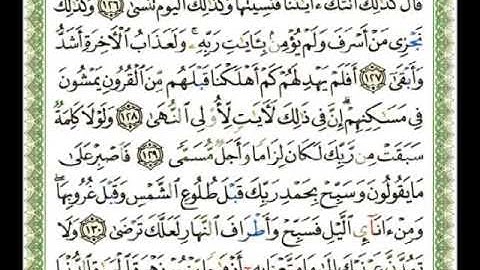 قَالَ كَذَٰلِكَ أَتَتْكَ ءَايَٰتُنَا فَنَسِيتَهَا وَكَذَٰلِكَ ٱلْيَوْمَ تُنسَىٰ ١٢٦ وَكَذَٰلِكَ
نَجْزِى مَنْ أَسْرَفَ وَلَمْ يُؤْمِنۢ بِـَٔايَٰتِ رَبِّهِۦ ۚ وَلَعَذَابُ ٱلْـَٔاخِرَةِ أَشَدُّ
وَأَبْقَىٰٓ ١٢٧ أَفَلَمْ يَهْدِ لَهُمْ كَمْ أَهْلَكْنَا قَبْلَهُم مِّنَ ٱلْقُرُونِ يَمْشُونَ
فِى مَسَٰكِنِهِمْ ۗ إِنَّ فِى ذَٰلِكَ لَـَٔايَٰتٍ لِّأُو۟لِى ٱلنُّهَىٰ ١٢٨ وَلَوْلَا كَلِمَةٌ
سَبَقَتْ مِن رَّبِّكَ لَكَانَ لِزَامًا وَأَجَلٌ مُّسَمًّى ١٢٩ فَٱصْبِرْ عَلَىٰ
مَا يَقُولُونَ وَسَبِّحْ بِحَمْدِ رَبِّكَ قَبْلَ طُلُوعِ ٱلشَّمْسِ وَقَبْلَ غُرُوبِهَا ۖ
وَمِنْ ءَانَآئِ ٱلَّيْلِ فَسَبِّحْ وَأَطْرَافَ ٱلنَّهَارِ لَعَلَّكَ تَرْضَىٰ ١٣٠ وَلَا
تَمُدَّنَّ عَيْنَيْكَ إِلَىٰ مَا مَتَّعْنَا بِهِۦٓ أَزْوَٰجًا مِّنْهُمْ زَهْرَةَ ٱلْحَيَوٰةِ ٱلدُّنْيَا